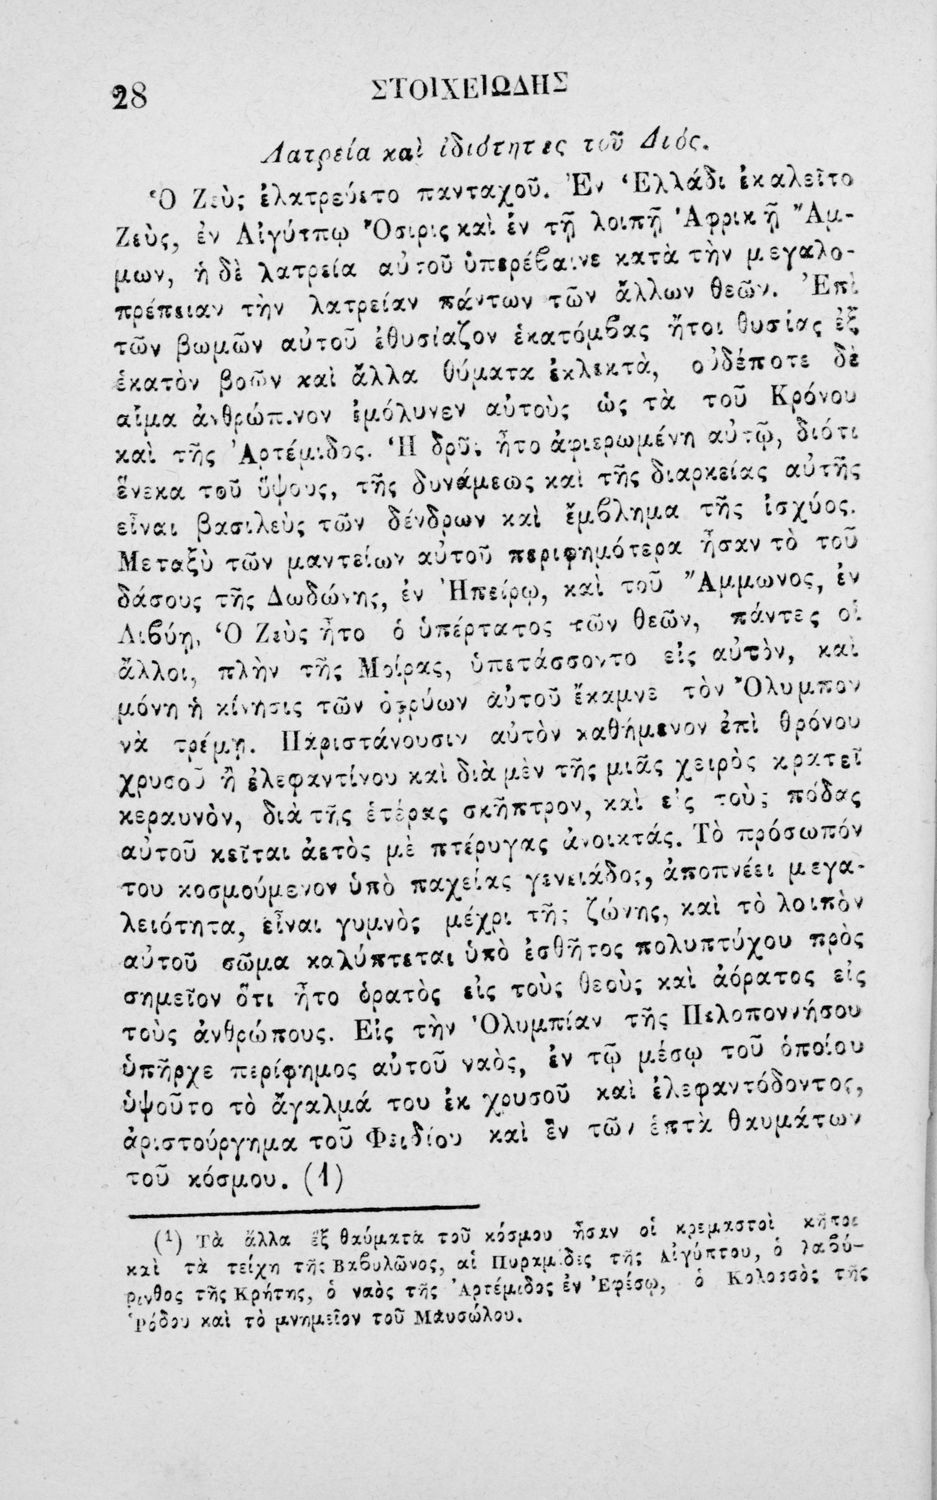 28
ΣΤΟΙΧΕΙΩΔΗΣ
Λατρεία καὶ ἰδιότητες τοῦ Διός.
Ὁ Ζεὺς ἐλατρεύετο πανταχοῦ. Ἐν Ἑλλάδι ἐκαλεῖτο
Ζεὺς, ἐν Αἰγύπτῳ Ὄσιρις καὶ ἐν τῇ λοιπῇ Ἀφρικῇ Ἄμ-
μων, ἡ δὲ λατρεία αὐτοῦ ὑπερέβαινε κατὰ τὴν μεγαλο-
πρέπειαν τὴν λατρείαν πάντων τῶν ἄλλων θεῶν. Ἐπὶ
τῶν βωμῶν αὐτοῦ ἐθυσίαζον ἑκατόμβας ἤτοι θυσίας ἐξ
ἑκατὸν βοῶν καὶ ἄλλα θύματα ἐκλεκτὰ, οὐδέποτε δὲ
αἷμα ἀνθρώπινον ἐμόλυνεν αὐτοὺς ὡς τὰ τοῦ Κρόνου
καὶ τῆς Ἀρτέμιδος. Ἡ δρῦς ἦτο ἀφιερωμένη αὐτῷ, διότι
ἕνεκα τοῦ ὕψους, τῆς δυνάμεως καὶ τῆς διαρκείας αὐτῆς
εἶναι βασιλεὺς τῶν δένδρων καὶ ἔμβλημα τῆς ἰσχύος.
Μεταξὺ τῶν μαντείων αὐτοῦ περιφημότερα ἦσαν τὸ τοῦ
δάσους τῆς Δωδώνης, ἐν Ἠπείρῳ, καὶ τοῦ Ἄμμωνος, ἐν
Λιβύῃ. Ὁ Ζεὺς ἦτο ὁ ὑπέρτατος τῶν θεῶν, πάντες οἱ
ἄλλοι, πλὴν τῆς Μοίρας, ὑπετάσσοντο εἰς αὐτὸν, καὶ
μόνη ἡ κίνησις τῶν ὀφρύων αὐτοῦ ἔκαμνε τὸν Ὄλυμπον
νὰ τρέμῃ. Παριστάνουσιν αὐτὸν καθήμενον ἐπὶ θρόνου
χρυσοῦ ἢ ἐλεφαντίνου καὶ διὰ μὲν τῆς μιᾶς χειρὸς κρατεῖ
κεραυνὸν, διὰ τῆς ἑτέρας σκῆπτρον, καὶ εἰς τοὺς πόδας
αὐτοῦ κεῖται ἀετὸς μὲ πτέρυγας ἀνοικτάς. Τὸ πρόσωπόν
του κοσμούμενον ὑπὸ παχείας γενειάδος, ἀποπνέει μεγα-
λειότητα, εἶναι γυμνὸς μέχρι τῆς ζώνης, καὶ τὸ λοιπὸν
αὐτοῦ σῶμα καλύπτεται ὑπὸ ἐσθῆτος πολυπτύχου πρὸς
σημεῖον ὅτι ἦτο ὁρατὸς εἰς τοὺς θεοὺς καὶ ἀόρατος εἰς
τοὺς ἀνθρώπους. Εἰς τὴν Ὀλυμπίαν τῆς Πελοποννήσου
ὑπῆρχε περίφημος αὐτοῦ ναὸς, ἐν τῷ μέσῳ τοῦ ὁποίου
ὑψοῦτο τὸ ἄγαλμά του ἐκ χρυσοῦ καὶ ἐλεφαντόδοντος,
ἀριστούργημα τοῦ Φειδίου καὶ ἓν τῶν ἑπτὰ θαυμάτων
τοῦ κόσμου. (1)
(1) Τὰ ἄλλα ἓξ θαύματα τοῦ κόσμου ἦσαν οἱ κρεμαστοὶ κῆποι
καὶ τὰ τείχη τῆς Βαβυλῶνος, αἱ Πυραμίδες τῆς Αἰγύπτου, ὁ λαβύ-
ρινθος τῆς Κρήτης, ὁ ναὸς τῆς Ἀρτέμιδος ἐν Ἐφέσῳ, ὁ Κολοσσὸς τῆς
Ῥόδου καὶ τὸ μνημεῖον τοῦ Μαυσώλου.